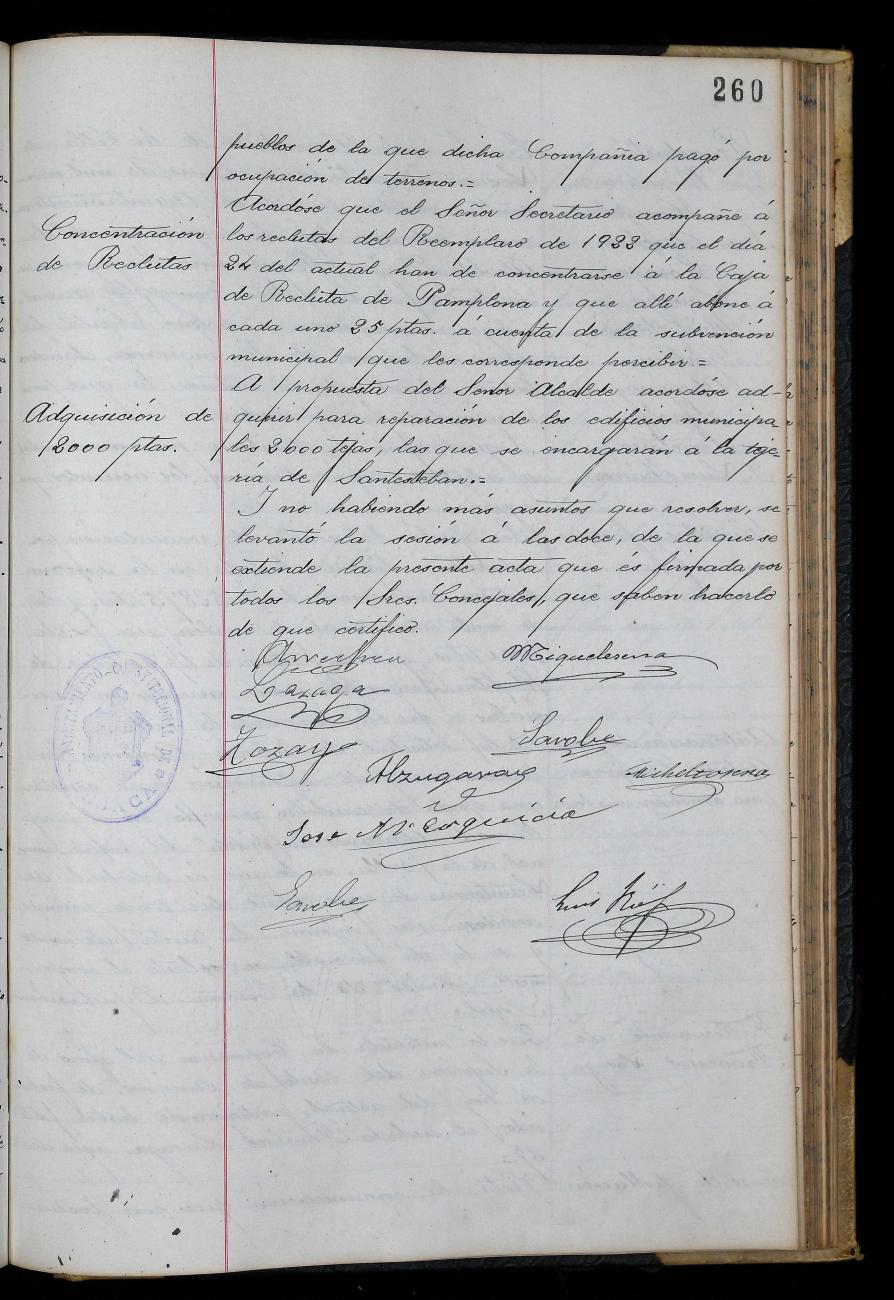 260
pueblos de la que dicha Compañia pagó por
ocupación de terrenos.=
Concentración
de Reclutas
Acordóse que el Señor Secretario acompañe á
los reclutas del Reemplazo de 1922 que el día
24 del actual han de concentrarse á la Caja
de Recluta de Pamplona y que allí abone á
cada uno 25 ptas. á cuenta de la subvención
municipal que les corresponde percibir.=
Adquisición de
2000 ptas.
A propuesta del Senor Alcalde acordóse ad-
quirir para reparación de los edificios municipa
les 2000 tejas, las que se encargarán á la teje-
ría de Santesteban.=
Y no habiendo más asuntos que resolver, se
levantó la sesión á las doce, de la que se
extiende la presente acta que és firmada por
todos los Sres. Concejales, que saben hacerlo
de que certifico.
Miquelerena
Lazuga
AYUNTAMIENTO-CONSTITUCIONAL DE
Alzugaray
Michelerena
Jose Mª Esquicia
Luis